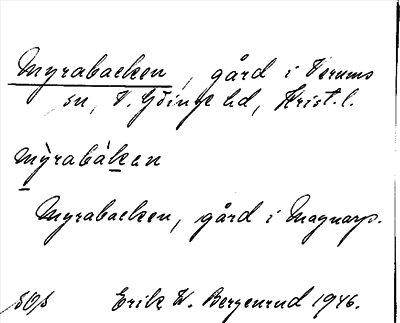 Myrabacken, gård i Verums
sn, V. Göinge hd, Krist. l.
my̍rabákan
Myrabacken, gård i Magnarp.
Erik W. Bergenrud 1946.